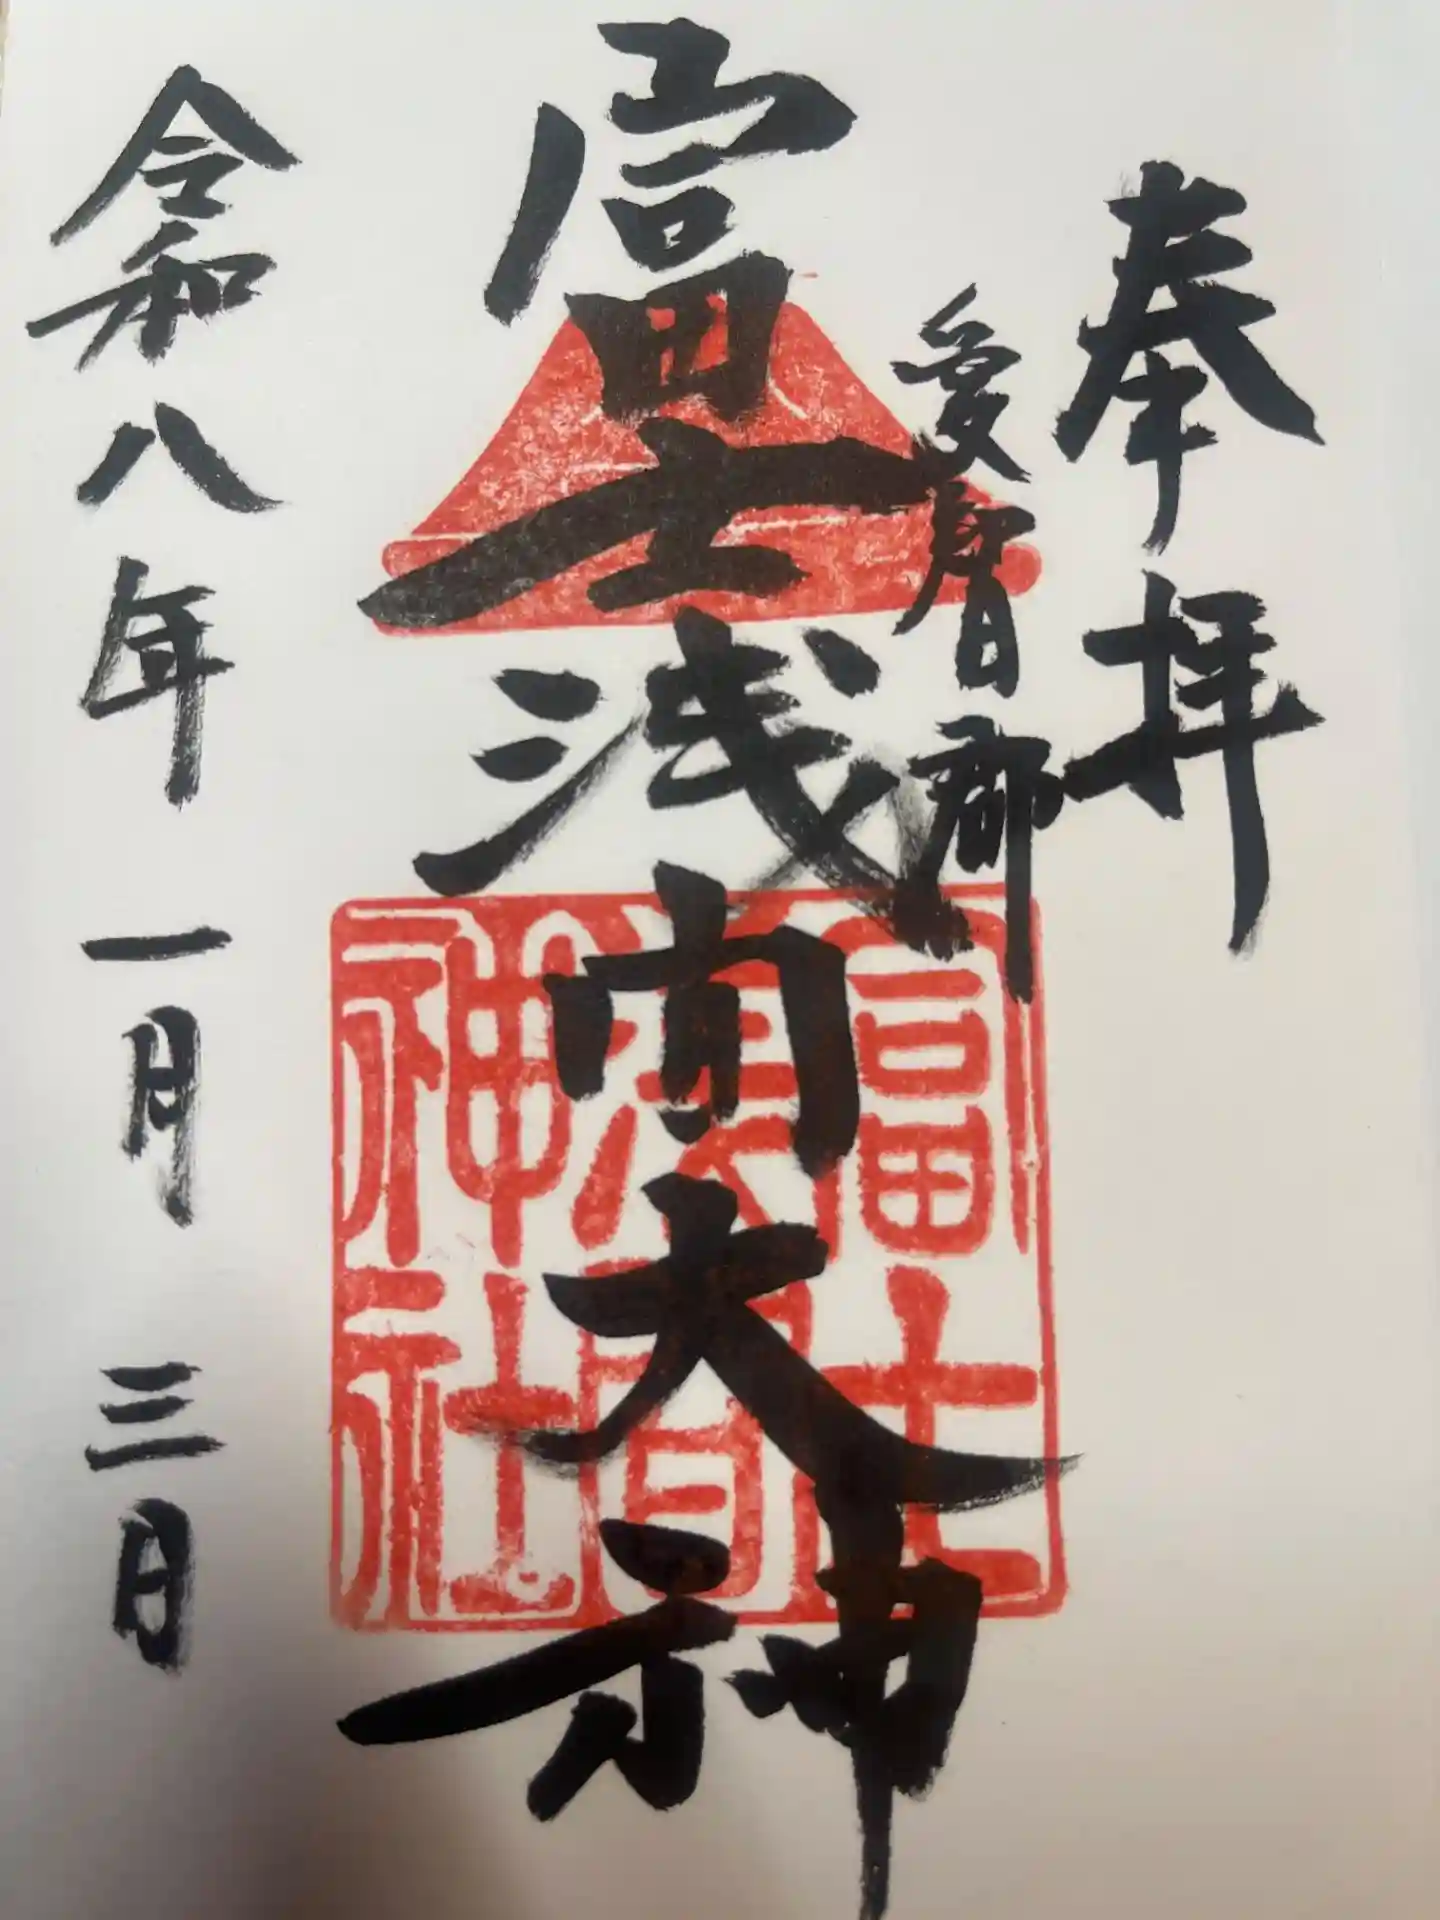 奉拝
愛智郡
富士浅間大神
令和八年一月三日
富士
淺間
神社